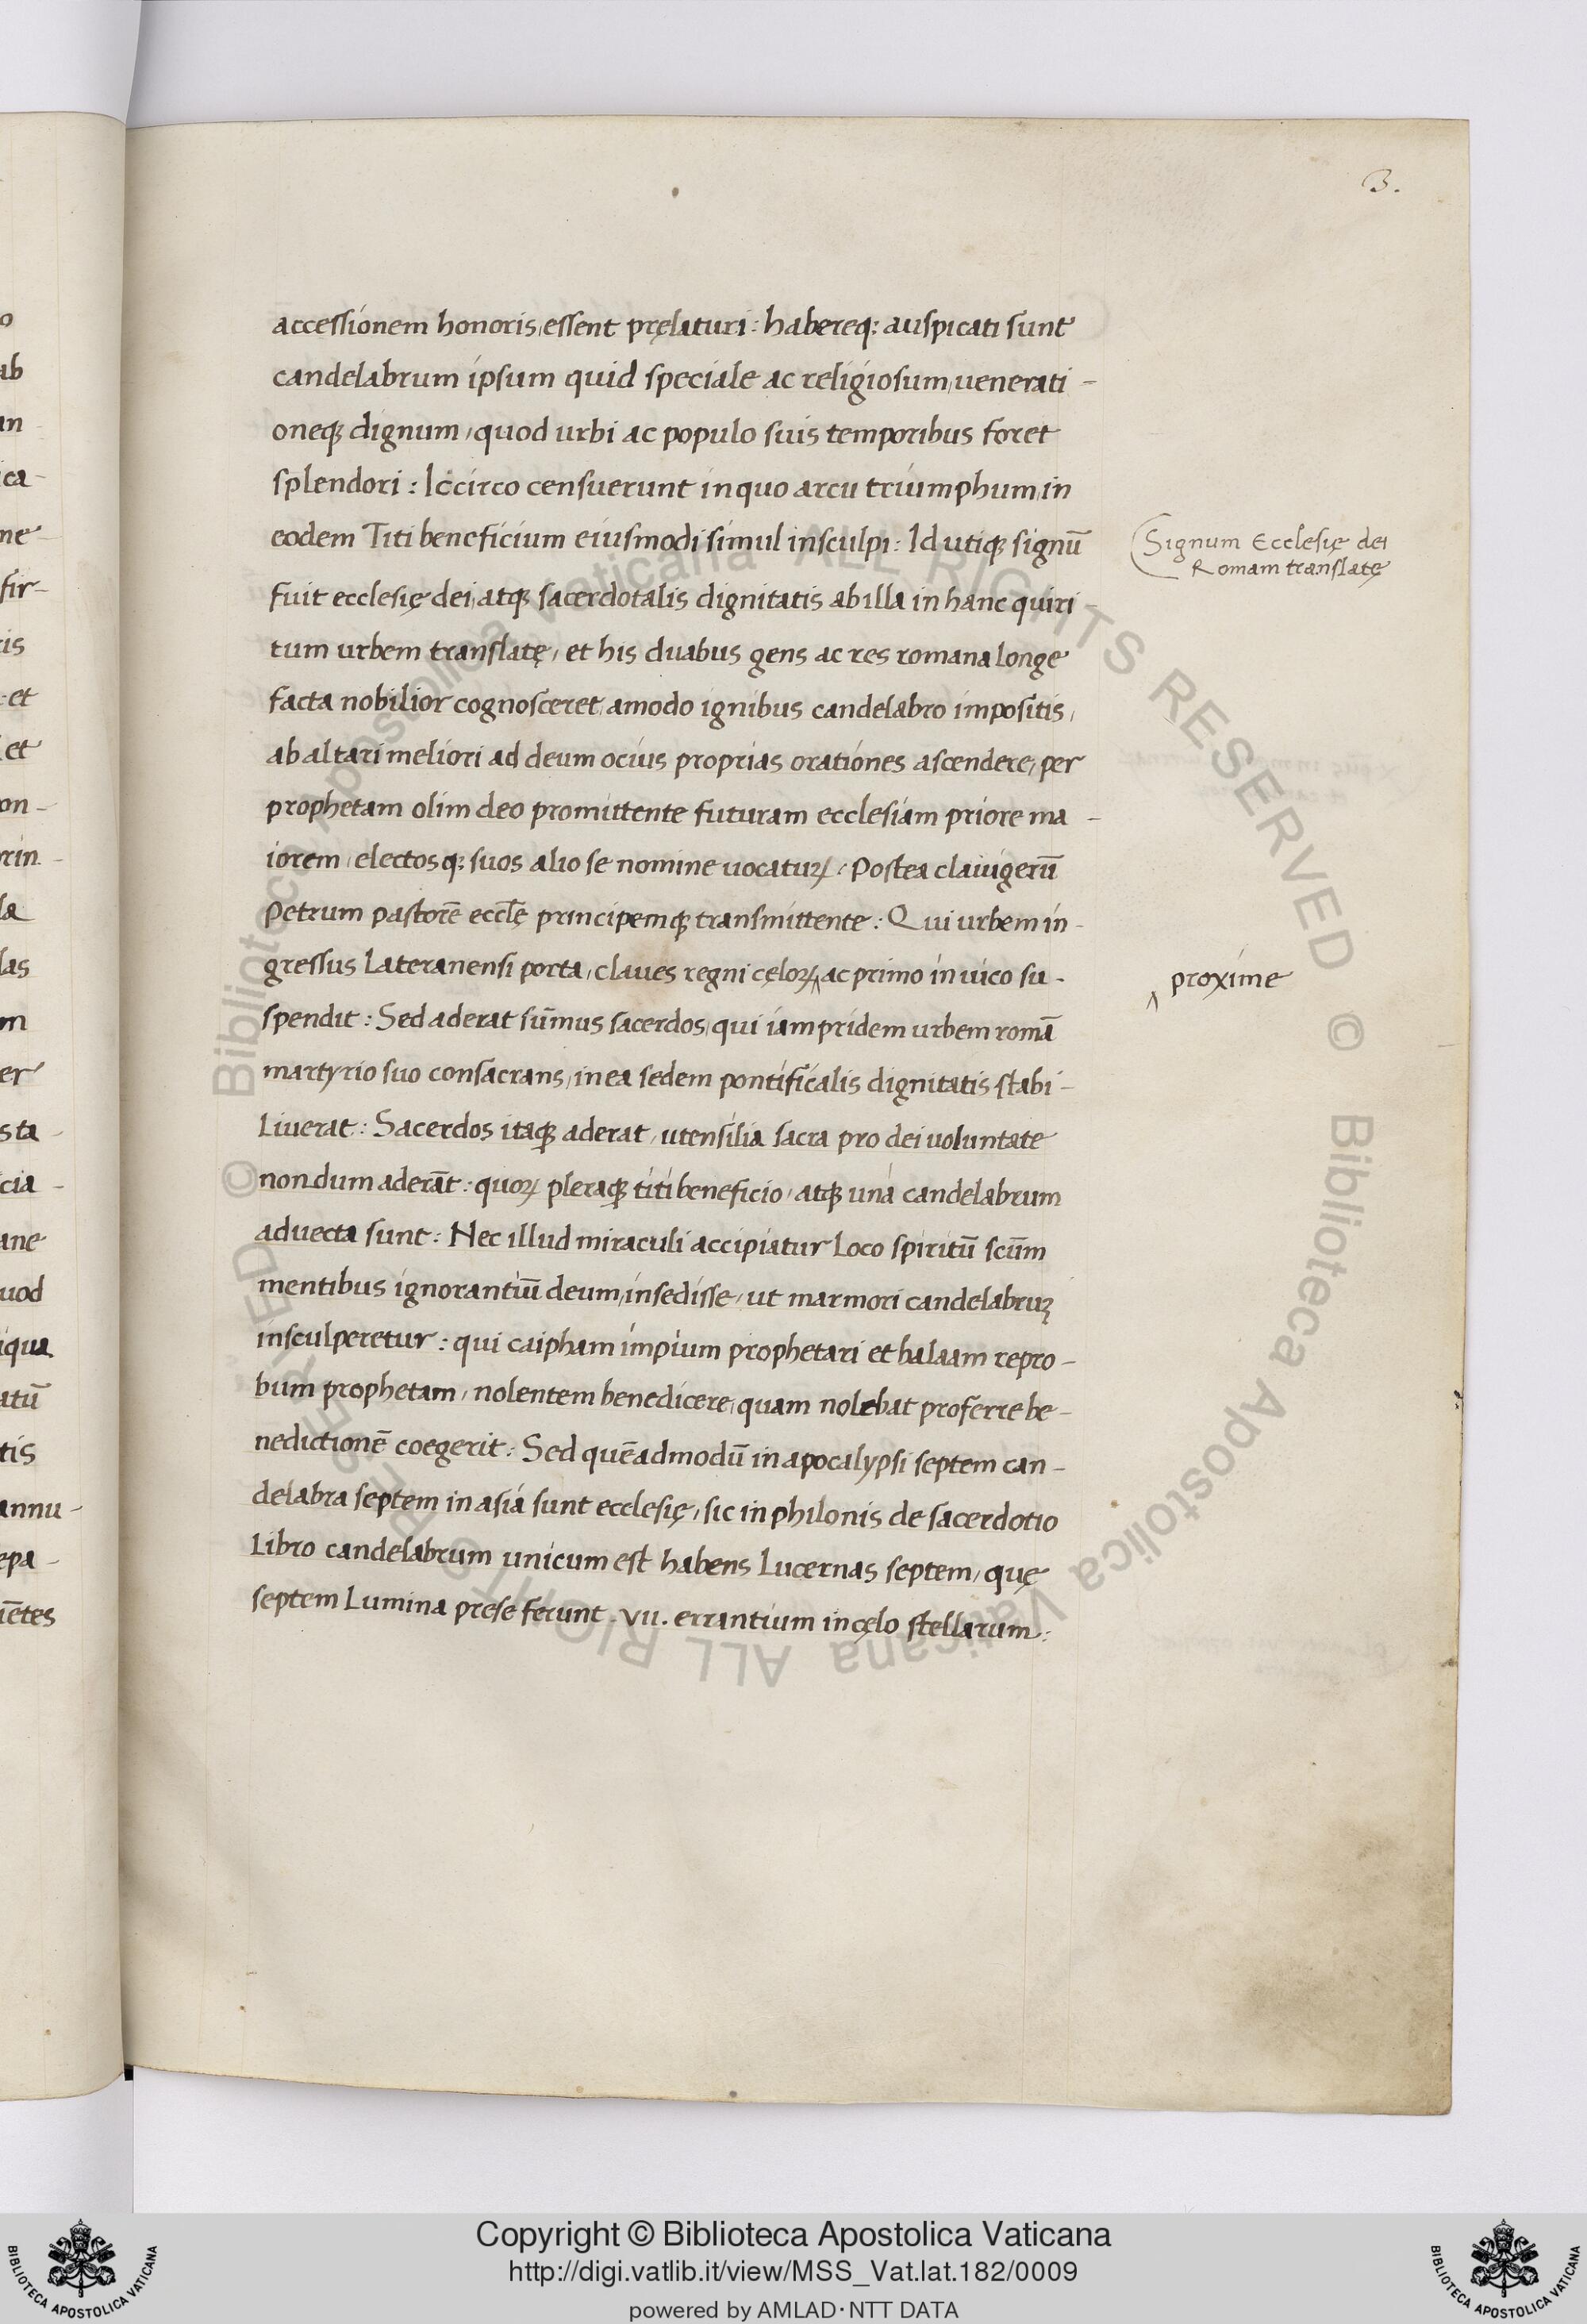 3.
accessionem honoris, essent pręlaturi: habereq; auspicati sunt
candelabrum ipsum quid speciale ac religiosum, uenerati-
oneq; dignum, quod urbi ac populo suis temporibus foret
splendori: Iccirco censuerunt in quo arcu triumphum, in
eodem Titi beneficium eiusmodi simul insculpi: Id utiq; signū
Signum Ecclesię dei
Romam translatę
fuit ecclesię dei, atq; sacerdotalis dignitatis ab illa in hanc quiri-
tum urbem translatę, et his duabus gens ac res romana longe
facta nobilior cognosceret, amodo ignibus candelabro impositis,
ab altari meliori ad deum ocius proprias orationes ascendere, per
prophetam olim deo promittente futuram ecclesiam priore ma-
iorem, electosq; suos alio se nomine uocaturꝝ. Postea clauigerū
Petrum pastorē eccl̄ę principemq; transmittente: Qui urbem in-
gressus Lateranensi porta, claues regni cęloꝝ ‸ ac primo in uico su-
‸ proxime
spendit: Sed aderat sūmus sacerdos, qui iampridem urbem romā
martyrio suo consacrans, in ea sedem pontificalis dignitatis stabi-
liuerat: Sacerdos itaq; aderat, utensilia sacra pro dei uoluntate
nondum aderāt: quoꝝ pleraq; titi beneficio, atq; unà candelabrum
aduecta sunt: Nec illud miraculi accipiatur loco spiritū scūm
mentibus ignorantiū deum, insedisse, ut marmori candelabruꝫ
insculperetur: qui caipham impium prophetari et balaam repro-
bum prophetam, nolentem benedicere, quam nolebat proferre be-
nedictionē coegerit: Sed quēadmodū in apocalypsi septem can-
delabra septem in asia sunt ecclesię, sic in philonis de sacerdotio
Libro candelabrum unicum est habens Lucernas septem, quę
septem Lumina prese ferunt .VII. errantium in cęlo stellarum:
© Biblioteca Apostolica Vaticana ALL RIGHTS RESERVED © Biblioteca Apostolica Vaticana ALL RIGHTS RESERVED
Copyright © Biblioteca Apostolica Vaticana
http://digi.vatlib.it/view/MSS_Vat.lat.182/0009
powered by AMLAD·NTT DATA
BIBLIOTECA APOSTOLICA VATICANA
BIBLIOTECA APOSTOLICA VATICANA